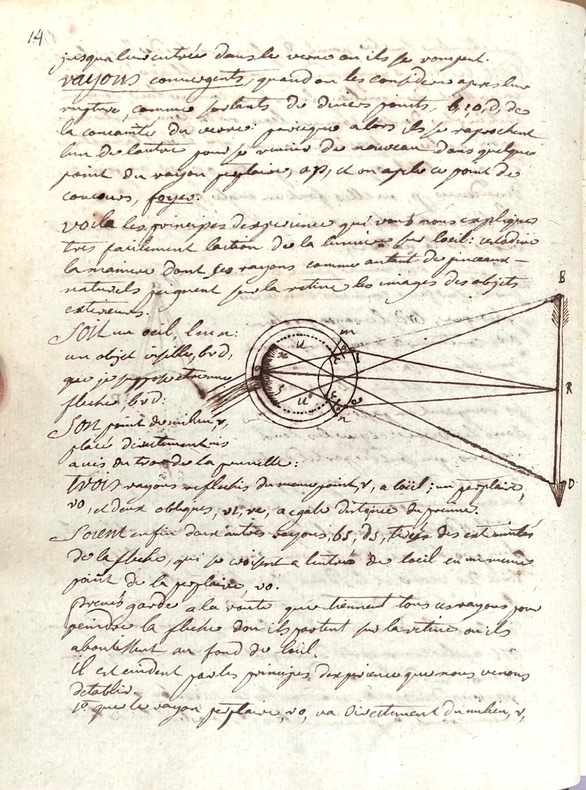 14
jusqua leur entrée dans le verre ou ils se rompent.
rayons convergents, quand on les considere apres leur
rupture, comme partants de divers points, b, o, d, de
la concavité du verre: parceque alors ils se raprochent
lun de lautre pour se reunir de nouveau dans quelque
point du rayon p̄plaire, ap, et on apele ce point de
concours, foyer.
Voila les principes dexperience qui vont nous expliquer
tres facilement laction de la lumiere sur loeil: cestadire
la maniere dont ses rayons comme autant de pinceaux
naturels peignent sur la retine les images des objets
exterieurs.
Soit un oeil
un objet visible, brd,
que je suppose etre une
fleche, brd:
Soit point du milieu r,
placé directement vis
a vis du trou de la prunelle:
trois rayons reflechis du meme point, r, a loeil; un p̄plaire,
ro, et deux obliques, ri, re, a egale distance du
Soient enfin deux autres rayons, bs, ds, tirés des extremités
de la fleche, qui se croisent a lentrée de loeil en un meme
point de la p̄plaire, ro.
prenés garde a la route que tiennent tous ces rayons pour
peindre la fleche dou ils partent sur la retine ou ils
aboutissent au fond de loeil.
il est evident par les principes dexperience que nous venons
detablir.
1º que le rayon p̄plaire, ro, va directement du milieu, r,
B
R
D
m
n
u
u